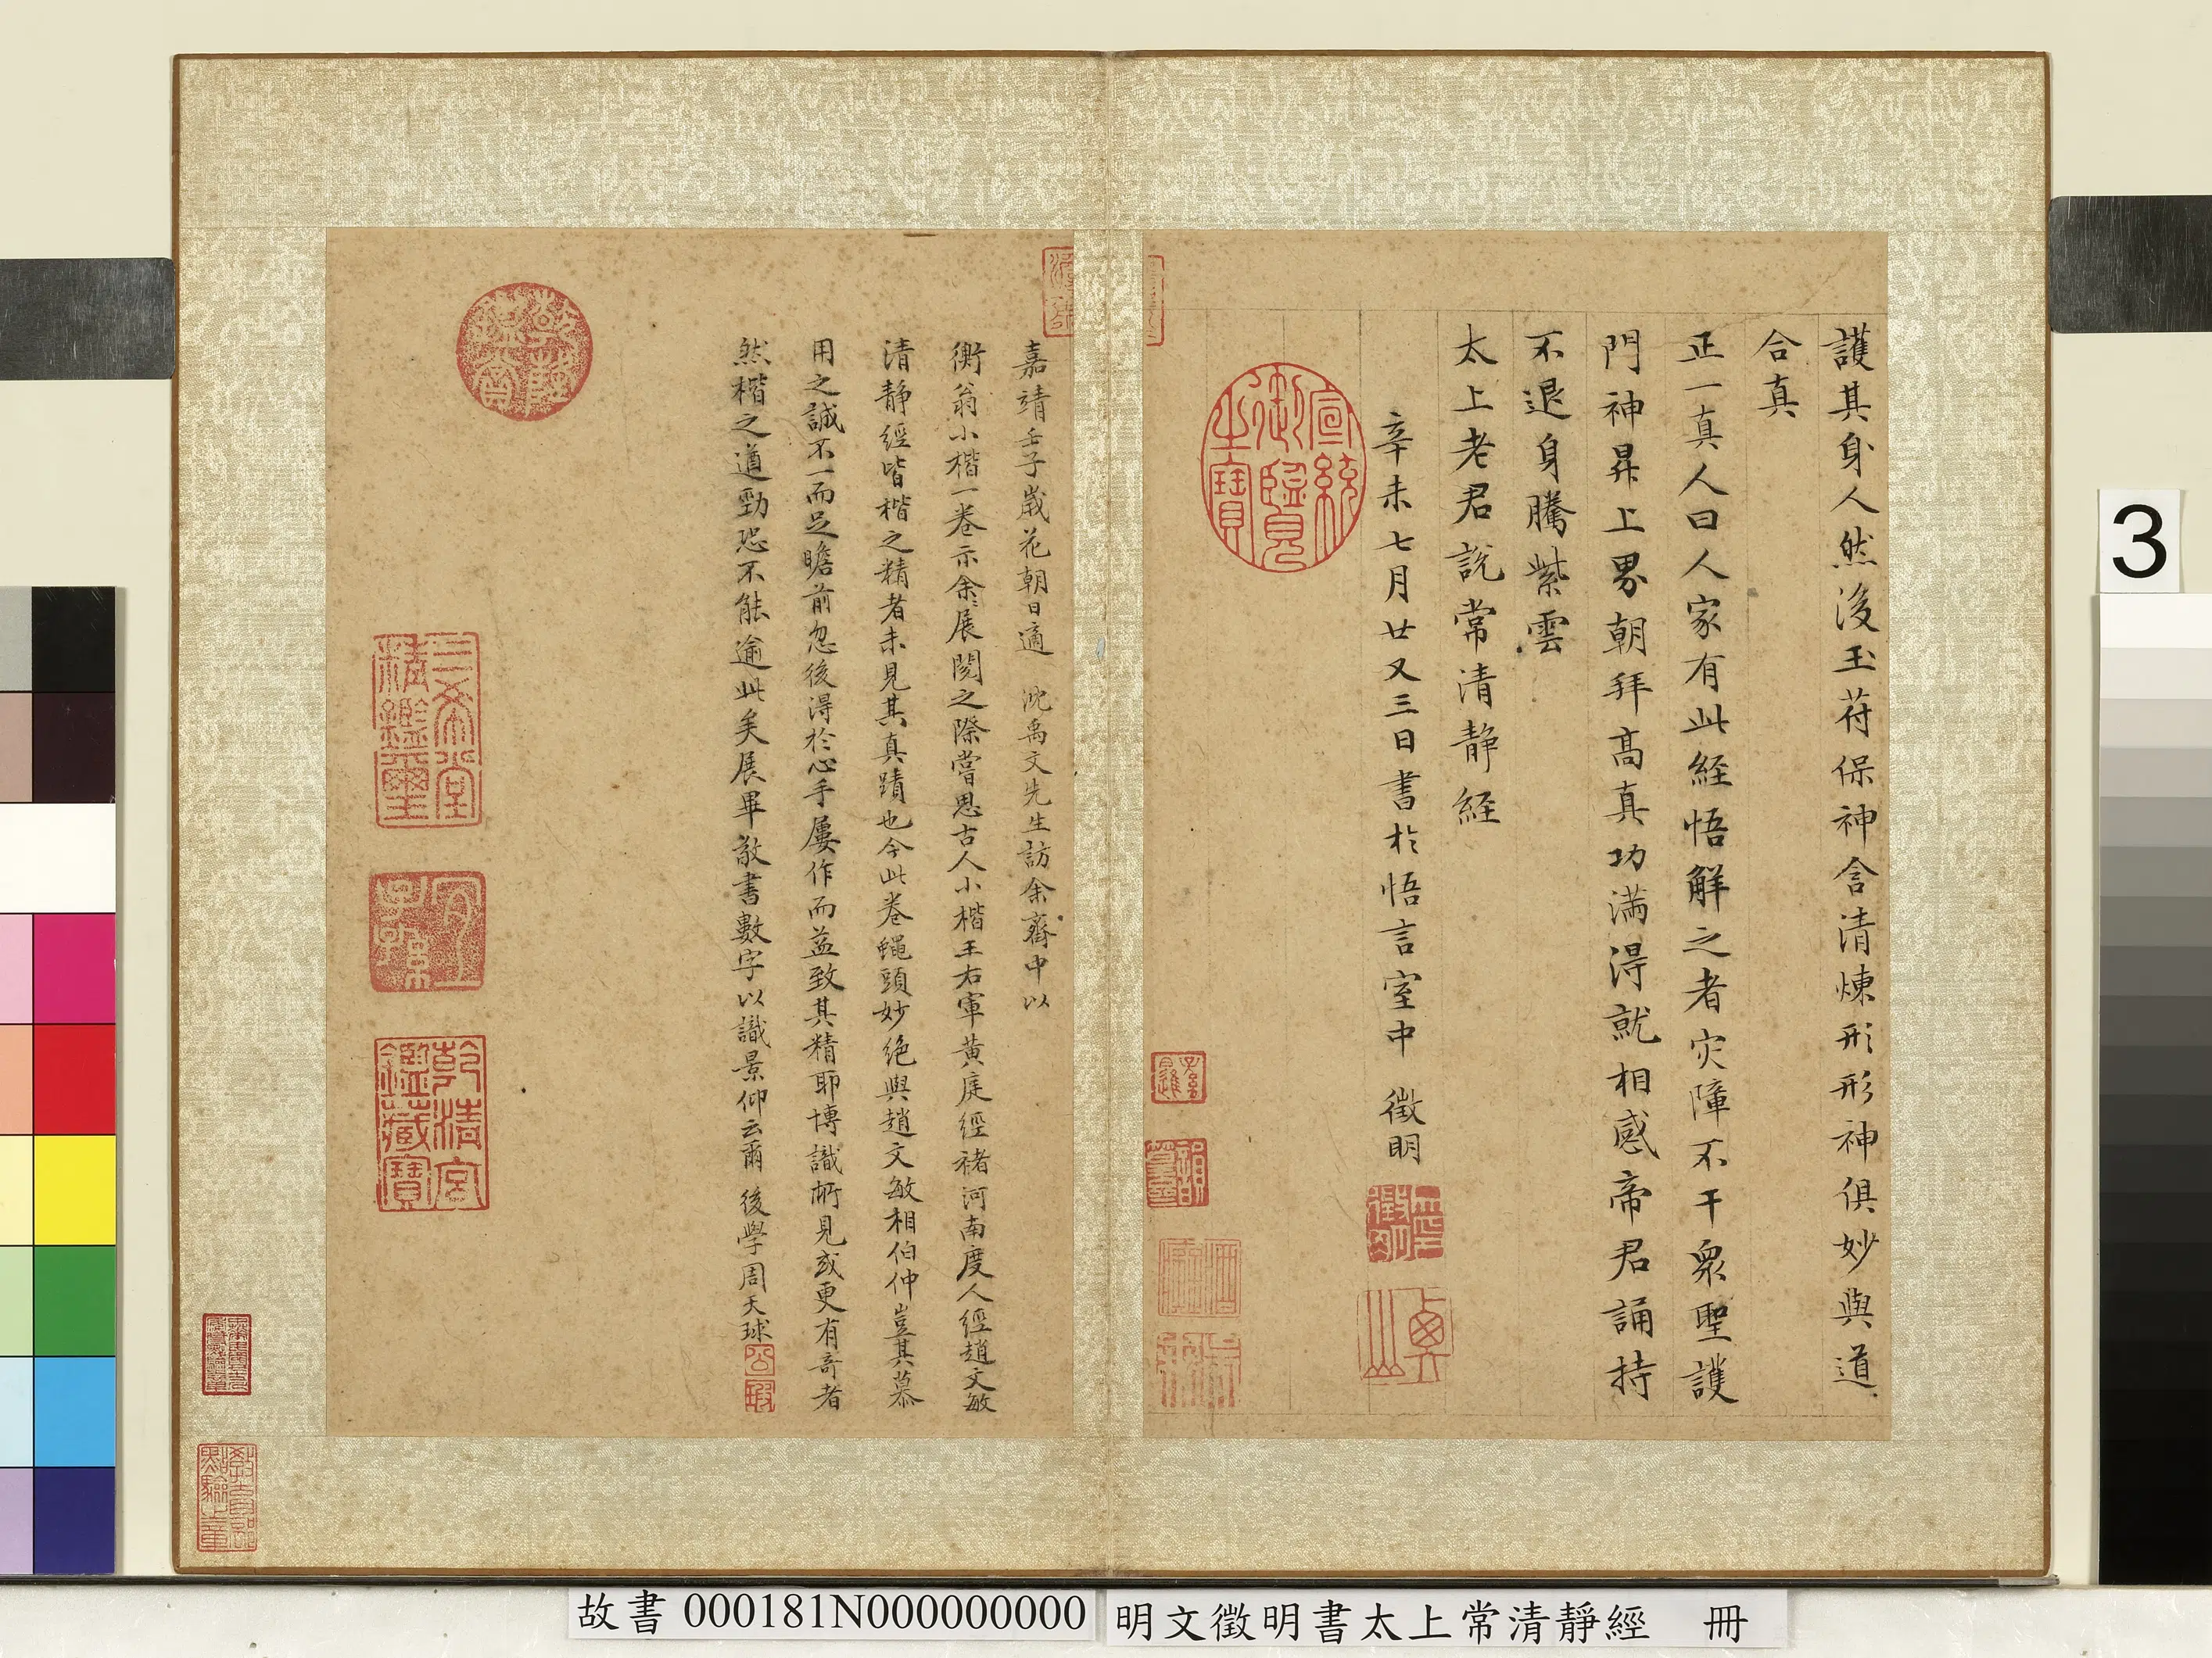 護其身人然後玉符保神含清煉形形神俱妙與道
合真
正一真人曰人家有此經悟解之者灾障不干衆聖護
門神昇上界朝拜高真功滿得就相感帝君誦持
不退身騰紫雲
太上老君說常清静經
辛未七月廿又三日書於悟言室中 徵明
宣統御覽之寶
嘉靖壬子歲花朝日適 沈禹文先生訪余齋中以
衡翁小楷一卷示余〻展閱之際嘗思古人小楷王右軍黄庭經褚河南度人經趙文敏
清静經皆楷之精者未見其真蹟也今此卷蠅頭妙絶與趙文敏相伯仲豈其慕
用之誠不一而足瞻前忽後得於心手屢作而益致其精耶博識所見或更有奇者
然楷之遒勁恐不能逾此矣展畢敬書數字以識景仰云爾 後學周天球
公瑕
乾隆鑑賞
三希堂精鑑璽
宜子孫
乾清宮鑑藏寶
3
故書 000181N000000000
明文徵明書太上常清靜經 冊